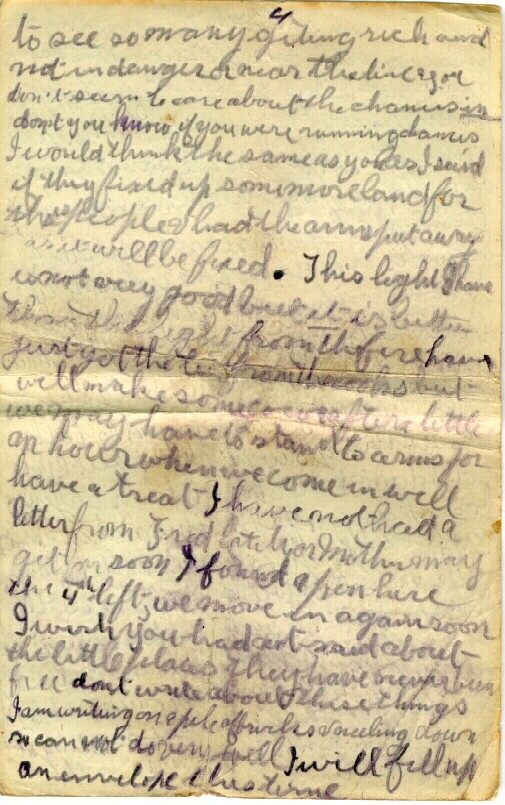 4
to see so many geting rich and
not in danger or near the line & you
don't seem to care about the chances in
don't you know if you were running chances
I would think the same as you as I said
if they fixed up some more land for
the people & had the arms put away
as it will be fixed. This light I have
is not very good but it is better
than the light from the fire have
just got the tea from the cooks but
will make some cocoa after a little
we may have to stand to arms for
an hour when we come in will
have a treat I have not had a
letter from Fred lately or Mother may
get one soon I found a pen here
the 4th left, we move in again soon
I wish you had not said about
the little places they have never been
free dont write about these things
I am writing on a pile of kneeling down
so can not do very well I will fill up
an envelope this time